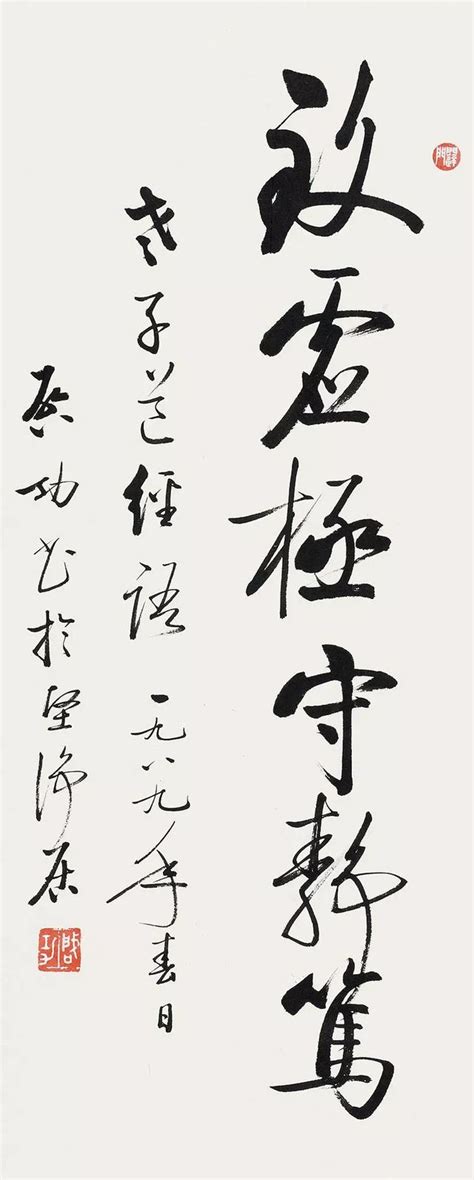 致虛極守靜篤
老子道經語 一九八九年春日
啟功書於堅淨居
啟功